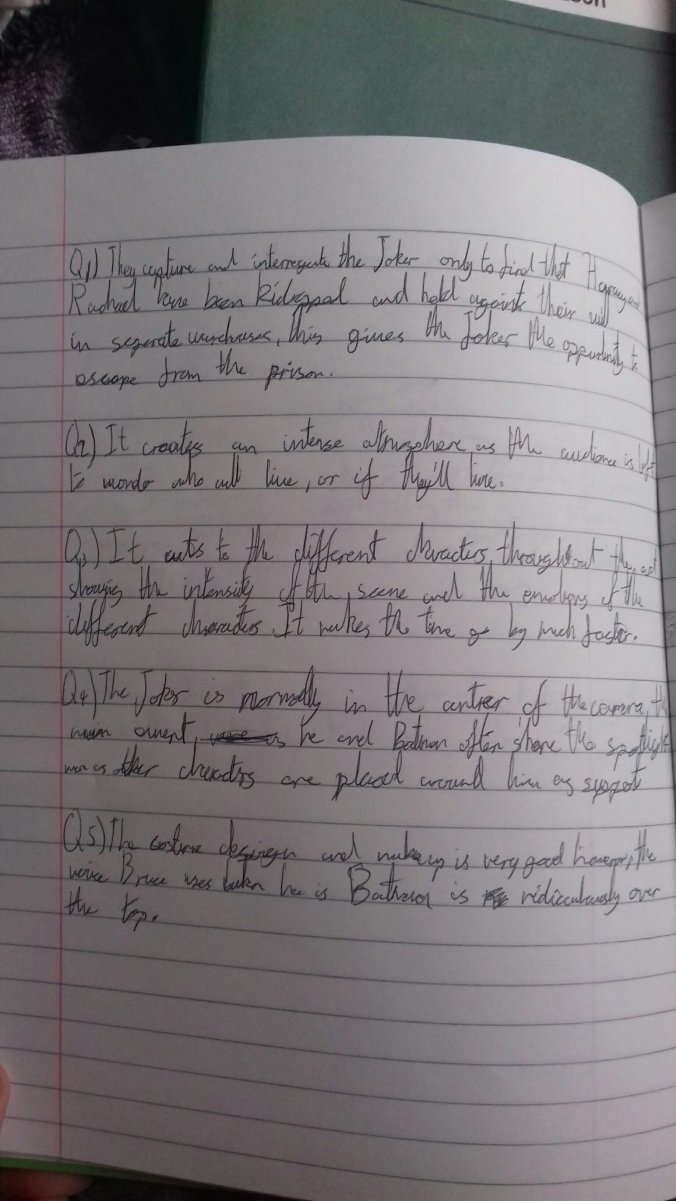 Q1) They capture and interrogate the Joker only to find that
Rachael have been and held their will
in seperate warehouses, this gives the Joker the opportunity to
escape from the prison.
Q2) It creates an intense atmosphere as the audience is left
to wonder who will live, or if they'll live.
Q3) It cuts to the different characters throughout the
showing the intensity of the scene and the emotions of the
different characters. It makes the time go by much faster.
Q4) The Joker is normally in the of the camera, the
he and Batman often share the spotlight
characters are placed around him as support
Q5) The costume and makeup is very good however, the
voice Bruce uses when he is Batman is ridiculously over
the top.